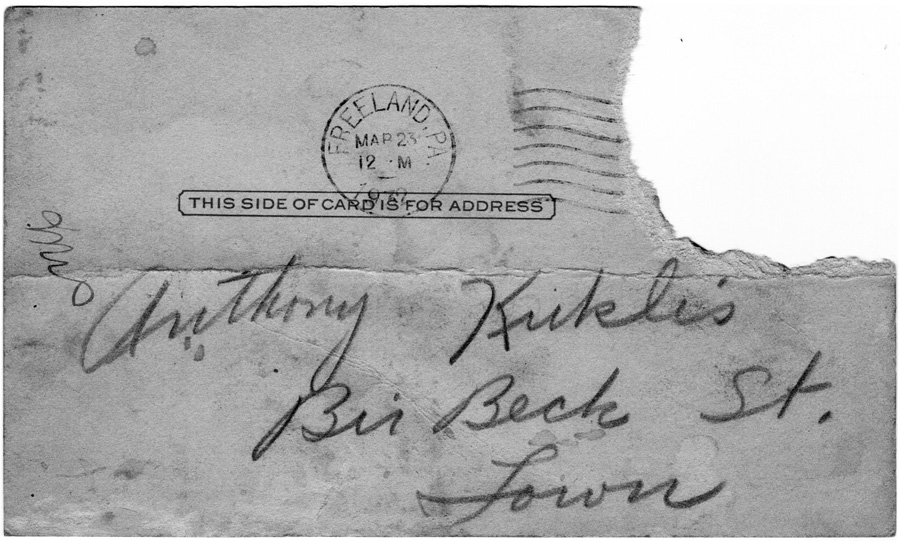 FREELAND, PA
MAR 23
12 M
THIS SIDE OF CARD IS FOR ADDRESS
Anthony Kuklis
Bir Beck St.
Town